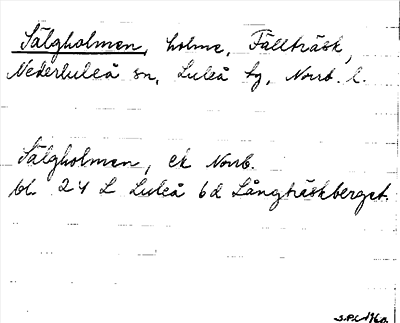 Sälgholmen, holme, Fällträsk,
Nederluleå sn, Luleå tg, Norrb. l.
Sälgholmen, ek Norrb.
bl. 24 L Luleå 6d Långträskberget.
S.P.L. 1960.